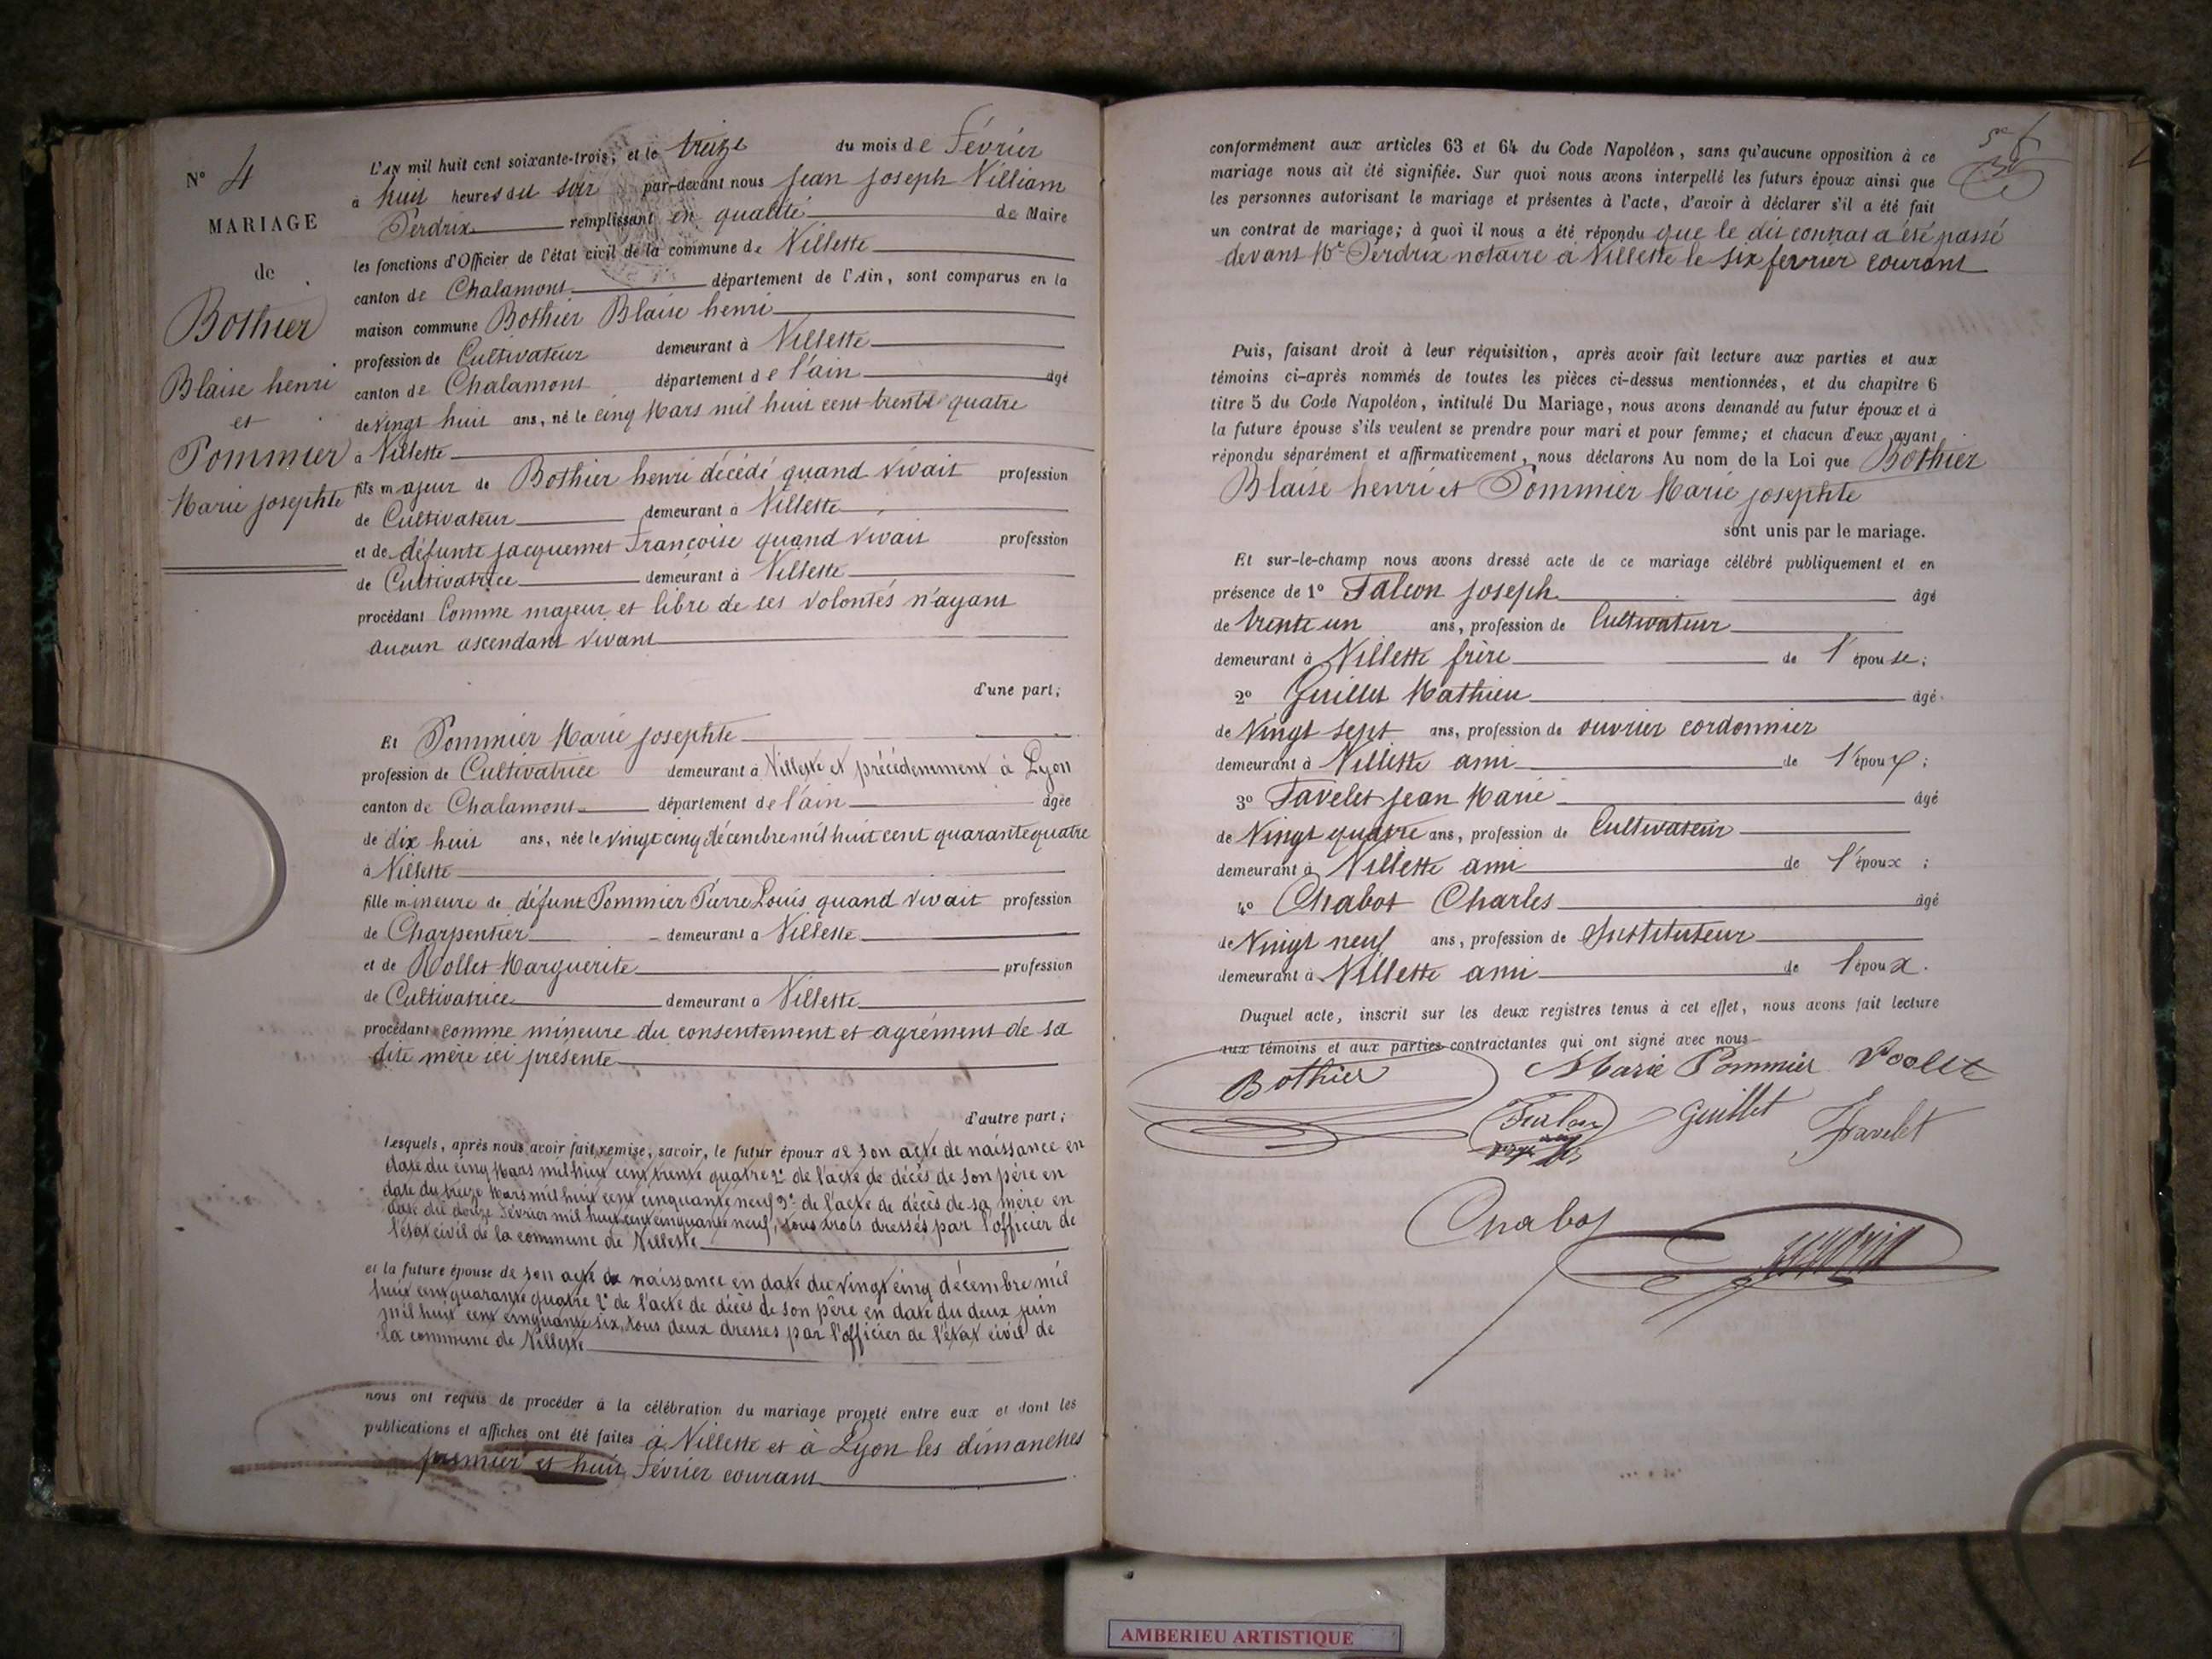 N° 4
MARIAGE
de
Bothier
Blaise henri
et
Pommier
Marie josephte
L'an mil huit cent soixante-trois, et le treize du mois de Février
à huit heures du soir par-devant nous Jean Joseph Villiam
Perdrix remplissant en qualité de Maire
les fonctions d'Officier de l'état civil de la commune de Villette
canton de Chalamont département de l'Ain, sont comparus en la
maison commune Bothier Blaise henri
profession de Cultivateur demeurant à Villette
canton de Chalamont département de l'ain âgé
de Vingt huit ans, né le cinq Mars mil huit cent trente quatre
à Villette
fils majeur de Bothier henri décédé quand vivait profession
de Cultivateur demeurant à Villette
et de défunte jacquemet Françoise quand vivait profession
de Cultivatrice demeurant à Villette
procédant Comme majeur et libre de ses volontés n'ayant
aucun ascendant vivant
d'une part;
Et Pommier Marie josephte
profession de Cultivatrice demeurant à Villette et précédemment à Lyon
canton de Chalamont département de l'ain âgée
de dix huit ans, née le vingt cinq décembre mil huit cent quarante quatre
à Villette
fille mineure de défunt Pommier Pierre Louis quand vivait profession
de Charpentier demeurant à Villette
et de Rollet Marguerite profession
de Cultivatrice demeurant à Villette
procédant comme mineure du consentement et agrément de sa
dite mère ici présente
d'autre part;
Lesquels, après nous avoir fait remise, savoir, le futur époux de son acte de naissance en
date du cinq Mars mil huit cent trente quatre 2° de l'acte de décès de son père en
date du treize Mars mil huit cent cinquante neuf 3° de l'acte de décès de sa mère en
date du douze Février mil huit cent cinquante neuf, tous trois dressés par l'officier de
l'état civil de la commune de Villette
et la future épouse de son acte de naissance en date du vingt cinq décembre mil
huit cent quarante quatre 2° de l'acte de décès de son père en date du deux juin
mil huit cent cinquante six, tous deux dressés par l'officier de l'état civil de
la commune de Villette
nous ont requis de procéder à la célébration du mariage projeté entre eux et dont les
publications et affiches ont été faites à Villette et à Lyon les dimanches
premier et huit Février courant
conformément aux articles 63 et 64 du Code Napoléon, sans qu'aucune opposition à ce
mariage nous ait été signifiée. Sur quoi nous avons interpellé les futurs époux ainsi que
les personnes autorisant le mariage et présentes à l'acte, d'avoir à déclarer s'il a été fait
un contrat de mariage; à quoi il nous a été répondu que le dit contrat a été passé
devant Me Perdrix notaire à Villette le six fevrier courant
Puis, faisant droit à leur réquisition, après avoir fait lecture aux parties et aux
témoins ci-après nommés de toutes les pièces ci-dessus mentionnées, et du chapitre 6
titre 5 du Code Napoléon, intitulé Du Mariage, nous avons demandé au futur époux et à
la future épouse s'ils veulent se prendre pour mari et pour femme; et chacun d'eux ayant
répondu séparément et affirmativement, nous déclarons Au nom de la Loi que Bothier
Blaise henri et Pommier Marie josephte
sont unis par le mariage.
Et sur-le-champ nous avons dressé acte de ce mariage célébré publiquement et en
présence de 1° Falcon joseph âgé
de trente un ans, profession de Cultivateur
demeurant à Villette frère de l'épouse;
2° Guillet Mathieu âgé
de Vingt sept ans, profession de ouvrier cordonnier
demeurant à Villette ami de l'époux;
3° Favelet jean Marie âgé
de Vingt quatre ans, profession de Cultivateur
demeurant à Villette ami de l'époux;
4° Chabot Charles âgé
de Vingt neuf ans, profession de Instituteur
demeurant à Villette ami de l'époux.
Duquel acte, inscrit sur les deux registres tenus à cet effet, nous avons fait lecture
aux témoins et aux parties contractantes qui ont signé avec nous
Bothier Marie Pommier
Guillet Favelet
Chabot
AMBERIEU ARTISTIQUE